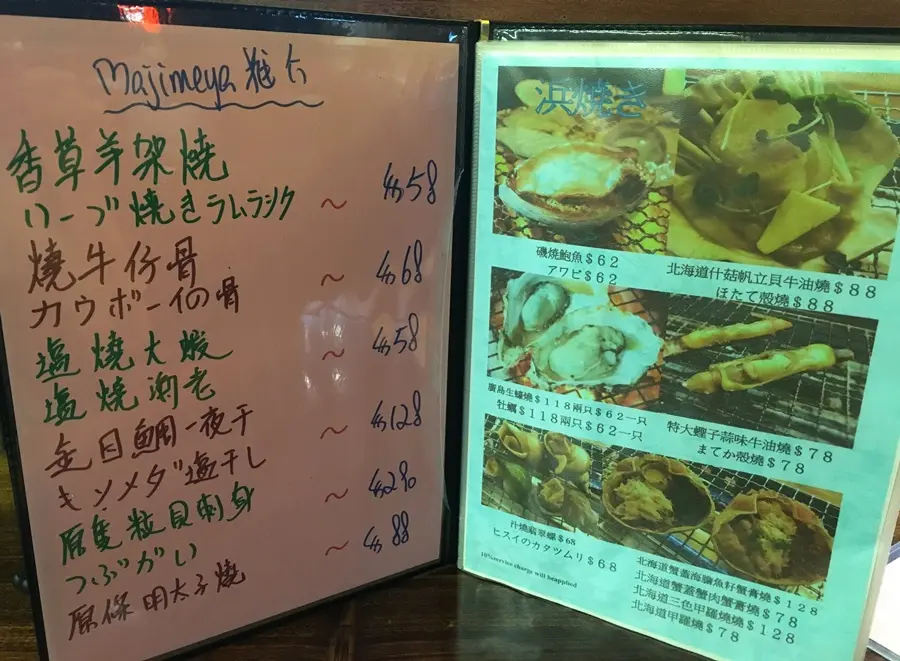 Majimeya 推介
香草羊架燒
ハーブ焼きラムラック ~ $58
燒牛仔骨
カウボーイの骨 ~ $68
塩燒大蝦
塩燒海老 ~ $58
金目鯛一夜干
キンメダ塩干し ~ $128
原隻粒貝刺身
つぶがい ~
原條明太子燒 ~ $88
浜焼き
磯燒鮑魚$62
アワビ$62
北海道什菇帆立貝牛油燒$88
ほたて殻燒$88
廣島生蠔燒$118兩只$62一只
牡蠣$118兩只$62一只
特大蟶子蒜味牛油燒$78
まてか殻燒$78
汁燒翡翠螺$68
ヒスイのカタツムリ$68
10%service charge will beapplied
北海道蟹蓋海膽魚籽蟹膏燒$128
北海道蟹蓋蟹肉蟹膏燒$78
北海道三色甲羅燒燒$128
北海道甲羅燒$78